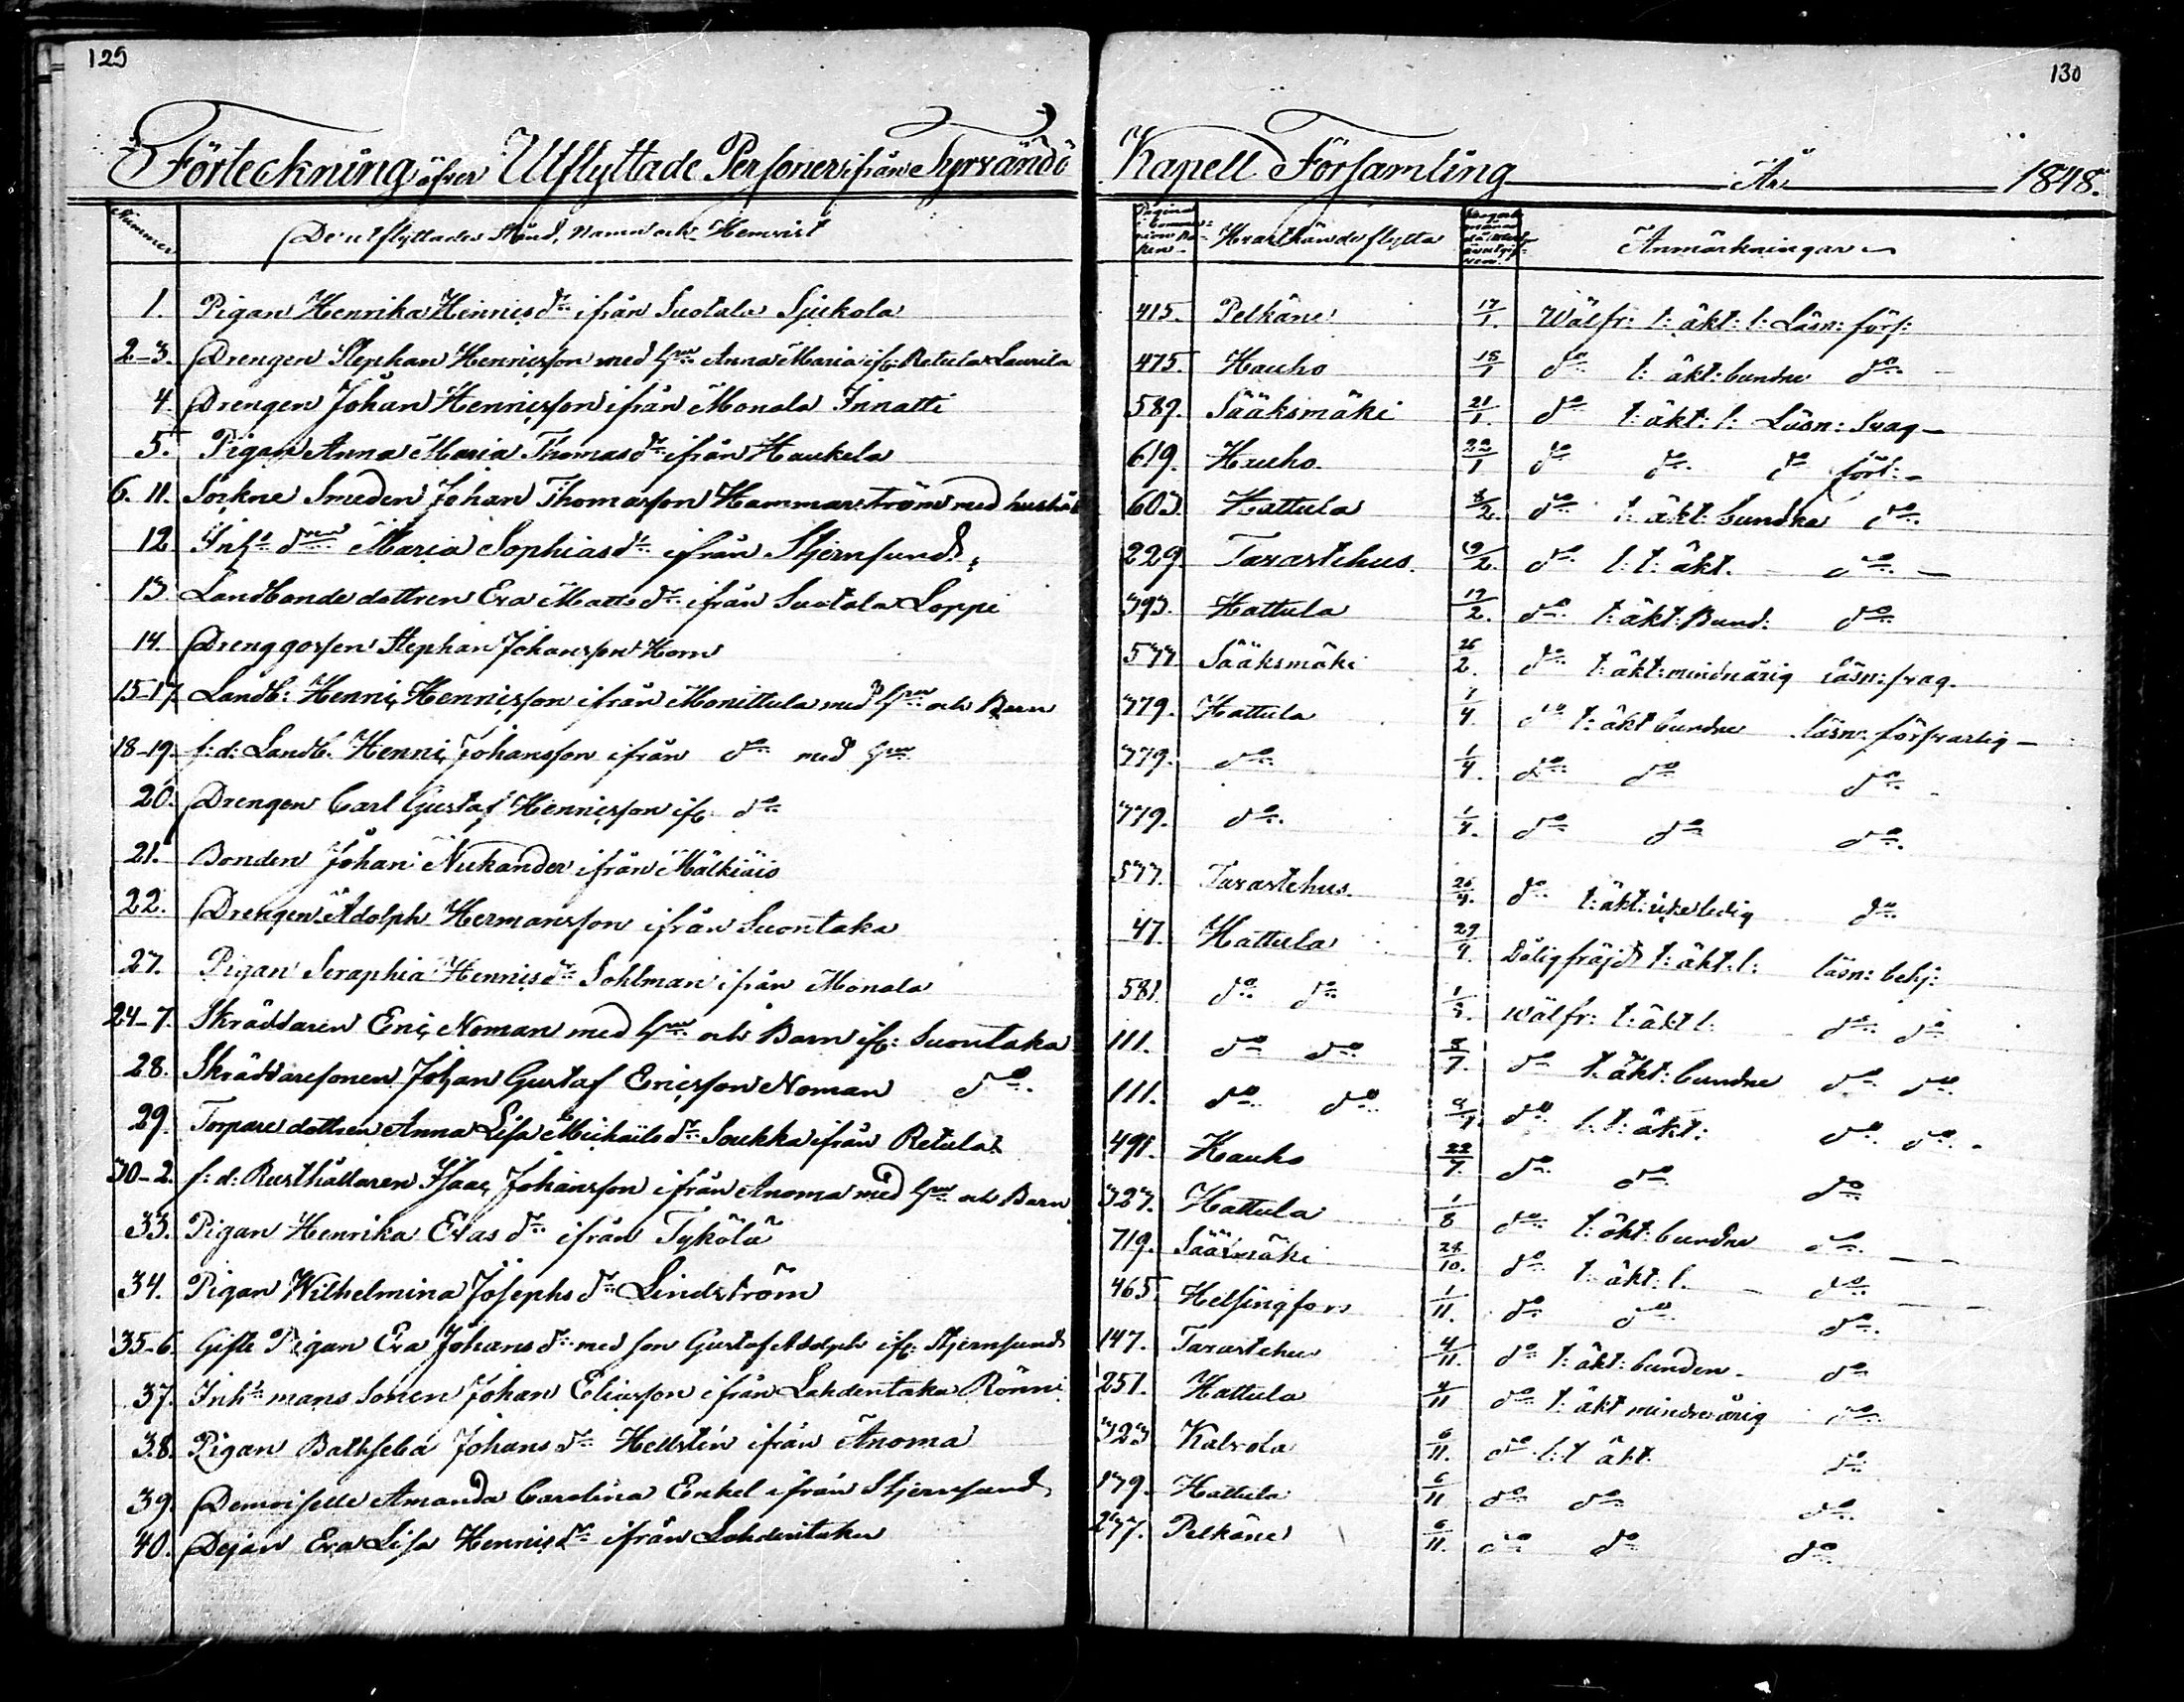 129
130
Förteckning öfver Utflyttade Personer ifrån Tyrvändö Kapell Församling År 1848.
Nummer De utflyttades Stånd, Namn och Hemvist Pagina i Commu- nion Bo- ken Hvarthän de flytta Anmärkningar
1. Pigan Henrika Henricsdr ifrån Suotala Sjukola 415. Pelkäne 17/1. Wälfr: t: äkt: l: Läsn:förs:
2-3. Drengen Stephan Henricsson med hru Anna Maria ifr: Retula Laurila 475. Hauho 18/1 do t: äkt: bundne do
4. Drengen Johan Henricsson ifrån Monala Innatti 589. Sääksmäki 21/1. do t: äkt: l: Läsn: Svag
5. Pigan Anna Maria Thomasdr ifrån Haukela 619. Hauho 22/1 do do do förs:
6. 11. Sockne Smeden Johan Thomasson Hammarström med hushåll 603. Hattula 8/2. do t: äkt: bundne do
12 Inhs dran Maria Sophiasdr ifrån Stjernsund 229. Tavastehus. 19/2. do l: t: äkt. do
13. Landbonde dottren Eva Mattsdr ifrån Suotala Loppi 393. Hattula 19/2. do t: äkt: Bund: do
14. Dreng gossen Stephan Johansson Horn 577 Sääksmäki 26/2. do t: äkt: mindreårig läsn: svag.
15-17 Landb: Henric Henricsson ifrån Monittula med hru och Barn 779. Hattula 1/4. do t: äkt bundne läsn: försvarlig
18-19. f: d: Landb. Henric Johansson ifrån do med hru 779. do 1/4. do do do
20. Drengen Carl Gustaf Henricsson ifr do 779. do 1/4. do do do
21. Bonden Johan Nukander ifrån Mälkiäis 577. Tavastehus. 26/4. do t: äkt: icke ledig do
22. Drengen Adolph Hermansson ifrån Suontaka 47. Hattula 29/4. Dålig fräjd t: äkt: l: läsn: behj:
23. Pigan Seraphia Henricsdr Sohlman ifrån Monala 581. do do 1/5. Wälfr: t: äkt l: do do
24-7. Skräddaren Eric Noman med hru och Barn ifr: Suontaka 111. do do 8/7. do t: äkt: bundne do do
28. Skräddaresonen Johan Gustaf Ericsson Noman do 111. do do 9/7. do l: t: äkt: do do
29. Torpare dottren Anna Lisa Michailsdr Soukka ifrån Retula 491. Hauho 22/7. do do do
30-2. f: d: Rusthållaren Isaac Johansson ifrån Anoma med hru och Barn 327. Hattula 1/8 do t: äkt: bundne do
33. Pigan Henrika Evasdr ifrån Tykölä 719. Säärmäki 28/10. do t: äkt: l. do
34. Pigan Wilhelmina Josephsdr Lindström 465 Helsingfors 1/11. do do do
35-6. Gifte Pigan Eva Johansdr med son Gustaf Adolph ifr: Stjernsund 147. Tavastehus 4/11. do t: äkt: bunden do
37. Inhs mans sonen Johan Eliasson ifrån Lahdentaka Rönni 251. Hattula 4/11 do t: äkt mindreårig do
38. Pigan Bathseba Johansdr Hellstén ifrån Anoma 323 Kalvola 6/11. do l: t äkt do
39. Demoiselle Amanda Carolina Enkel ifrån Stjernsund 179. Hattula 6/11 do do do
40. Dejan Eva Lisa Henricsdr ifrån Lahdentaka 277. Pelkäne 6/11. do do do